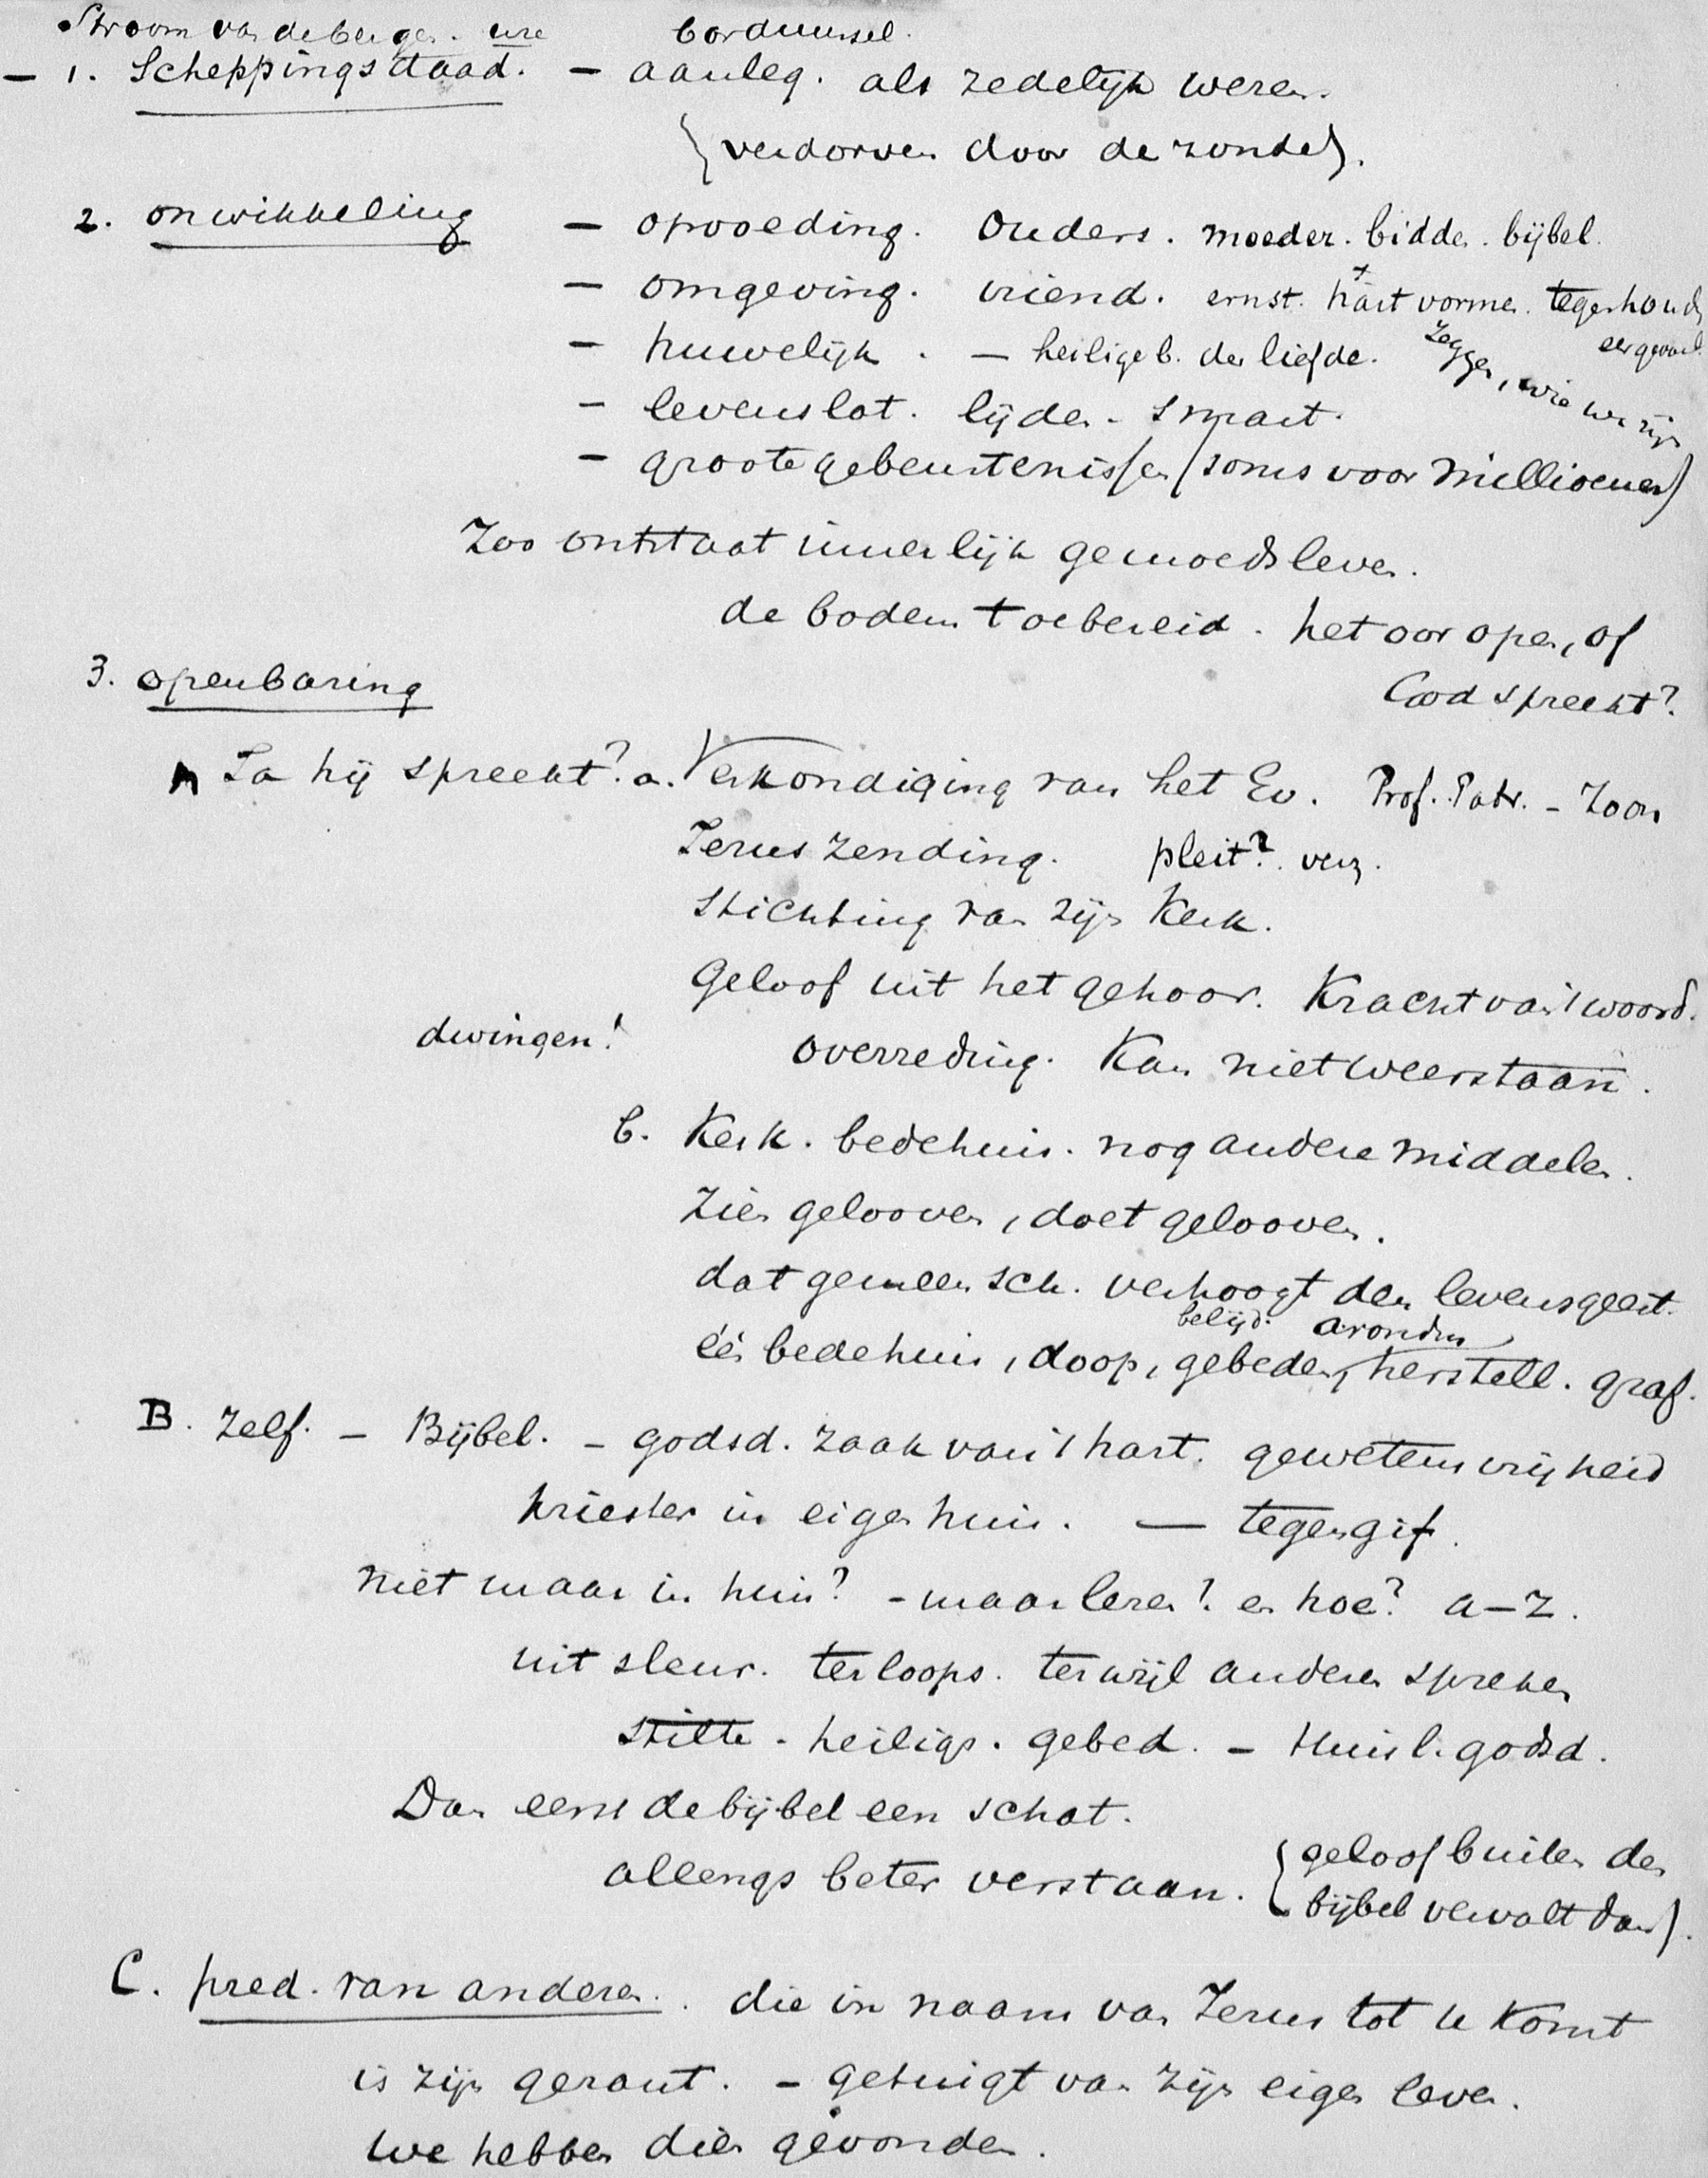 Stroom van de bergen. ure borduursel.
– 1. Scheppingsdaad. – aanleg. als zedelijk wezen.
(verdorven door de zonde).
2. onwikkeling – opvoeding. Ouders. moeder. bidden. bijbel.
– omgeving. vriend. ernst. hart vormen. tegenhouden
– huwelijk. – heilige b. der liefde. zeggen, wie we zijn
– levenslot. lijden – smart.
– groote gebeurtenissen (soms voor millioenen)
Zoo ontstaat innerlijk gemoedsleven.
de bodem toebereid. het oor open, of
God spreekt?
3. openbaring
A Ja hij spreekt? a. Verkondiging van het Ev. Prof. Patr. – Zoon
Jezus zending. pleit? verz.
Stichting van zijn Kerk.
Geloof uit het gehoor. Kracht van 't woord.
dwingen! overreding. Kan niet weerstaan.
b. Kerk. bedehuis. nog andere middelen.
Zien gelooven, doet gelooven.
dat gemeensch. verhoogt den levensgeest.
belijd. avondm
één bedehuis, doop, gebeden, herstell. graf.
B. Zelf. – Bijbel. – godsd. zaak van 't hart. gewetensvrijheid
priester in eigen huis. — tegengif.
niet maar in huis? – maar lezen? en hoe? a–z.
uit sleur. terloops. terwijl anderen spreken
stilte – heiligs. gebed. – Huisl. godsd.
Dan eerst de bijbel een schat.
allengs beter verstaan. (geloof buiten den
bijbel vervalt dan).
C. pred. van anderen. die in naam van Jezus tot u komt
is zijn gezant. – getuigt van zijn eigen leven.
We hebben dien gevonden.